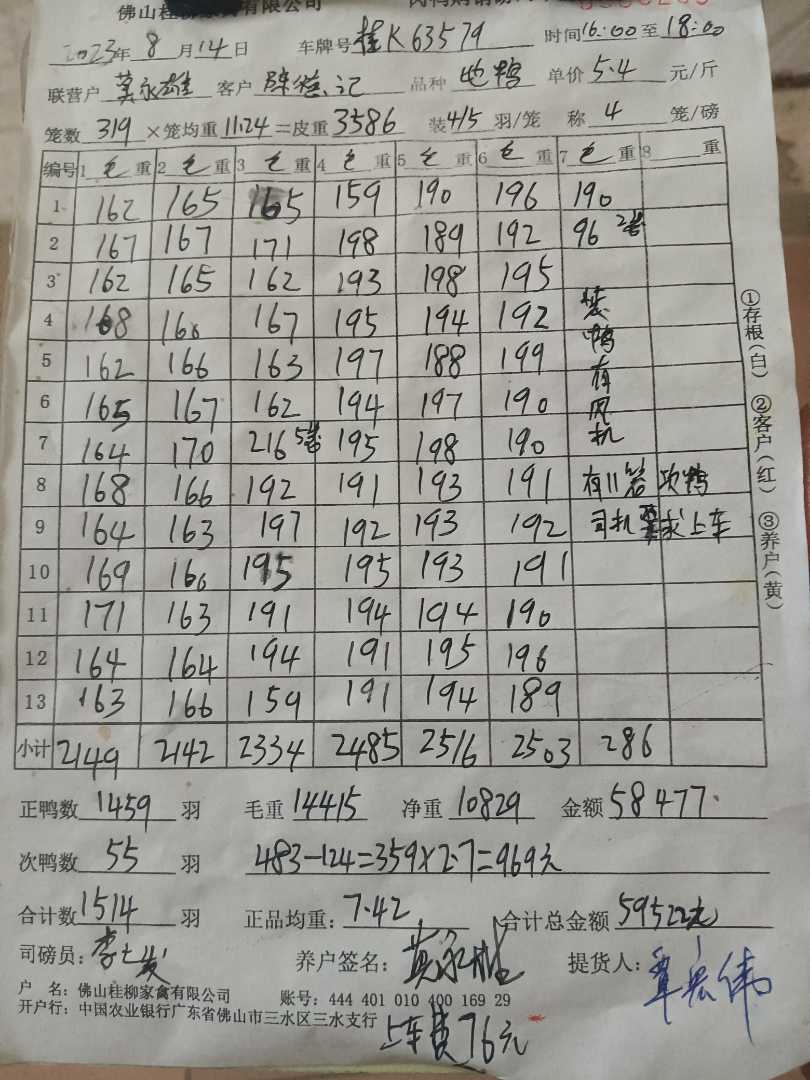 佛山桂柳家禽有限公司
2023年8月14日 车牌号桂K63579 时间16:00至18:00
联营户 莫永雄 客户 陈德记 品种 地鸭 单价5.4元/斤
笼数319×笼均重11.24=皮重3586 装4/5羽/笼 称4笼/磅
编号 1毛重 2毛重 3毛重 4毛重 5毛重 6毛重 7毛重 8重
1 162 165 165 159 190 196 190
2 167 167 171 198 189 192 96 2笼
3 162 165 162 193 198 195
4 168 166 167 195 194 192 装
5 162 166 163 197 188 199 鸭有
6 165 167 162 194 197 190 风
7 164 170 216 5笼 195 198 190 机
8 168 166 192 191 193 191 有11笼次鸭
9 164 163 197 192 193 192 司机要求上车
10 169 166 195 195 193 191
11 171 163 191 194 194 190
12 164 164 194 191 195 196
13 163 166 159 191 194 189
小计 2149 2142 2334 2485 2516 2503 286
①存根(白) ②客户(红) ③养户(黄)
正鸭数1459羽 毛重14415 净重10829 金额58477.
次鸭数55羽 483-124=359×2.7=969元
合计数1514羽 正品均重:7.42 合计总金额59522元
司磅员: 养户签名: 提货人:
户 名:佛山桂柳家禽有限公司 账号:444 401 010 400 169 29
开户行:中国农业银行广东省佛山市三水区三水支行
上车费76元